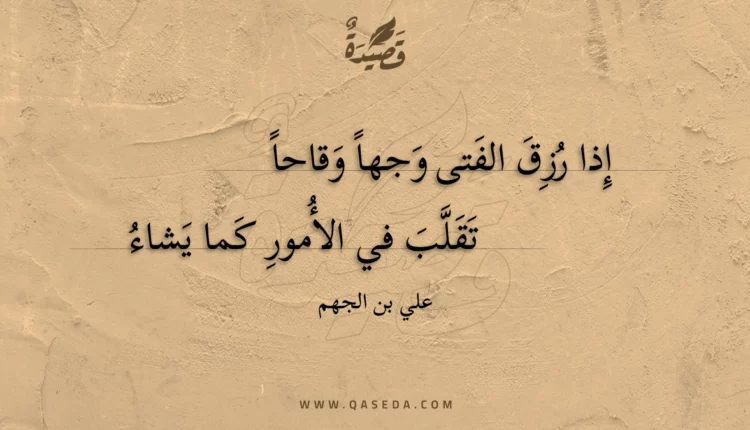 قَصِيْدَةٌ
إِذا رُزِقَ الفَتى وَجهاً وَقاحاً
تَقَلَّبَ في الأُمورِ كَما يَشاءُ
علي بن الجهم
WWW.QASEDA.COM